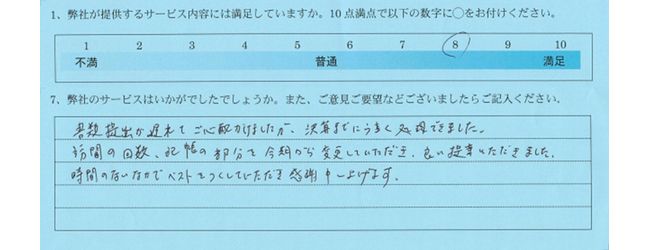 1、弊社が提供するサービス内容には満足していますか。10点満点で以下の数字に○をお付けください。
1 2 3 4 5 6 7 8 9 10
不満 普通 満足
7、弊社のサービスはいかがでしたでしょうか。また、ご意見ご要望などございましたらご記入ください。
書類提出が遅れてご心配かけましたが、決算までにうまく処理できました。
訪問の回数、記帳の部分を今期から変更していただき、良い提案いただきました。
時間のないなかでベストをつくしていただき感謝申し上げます。